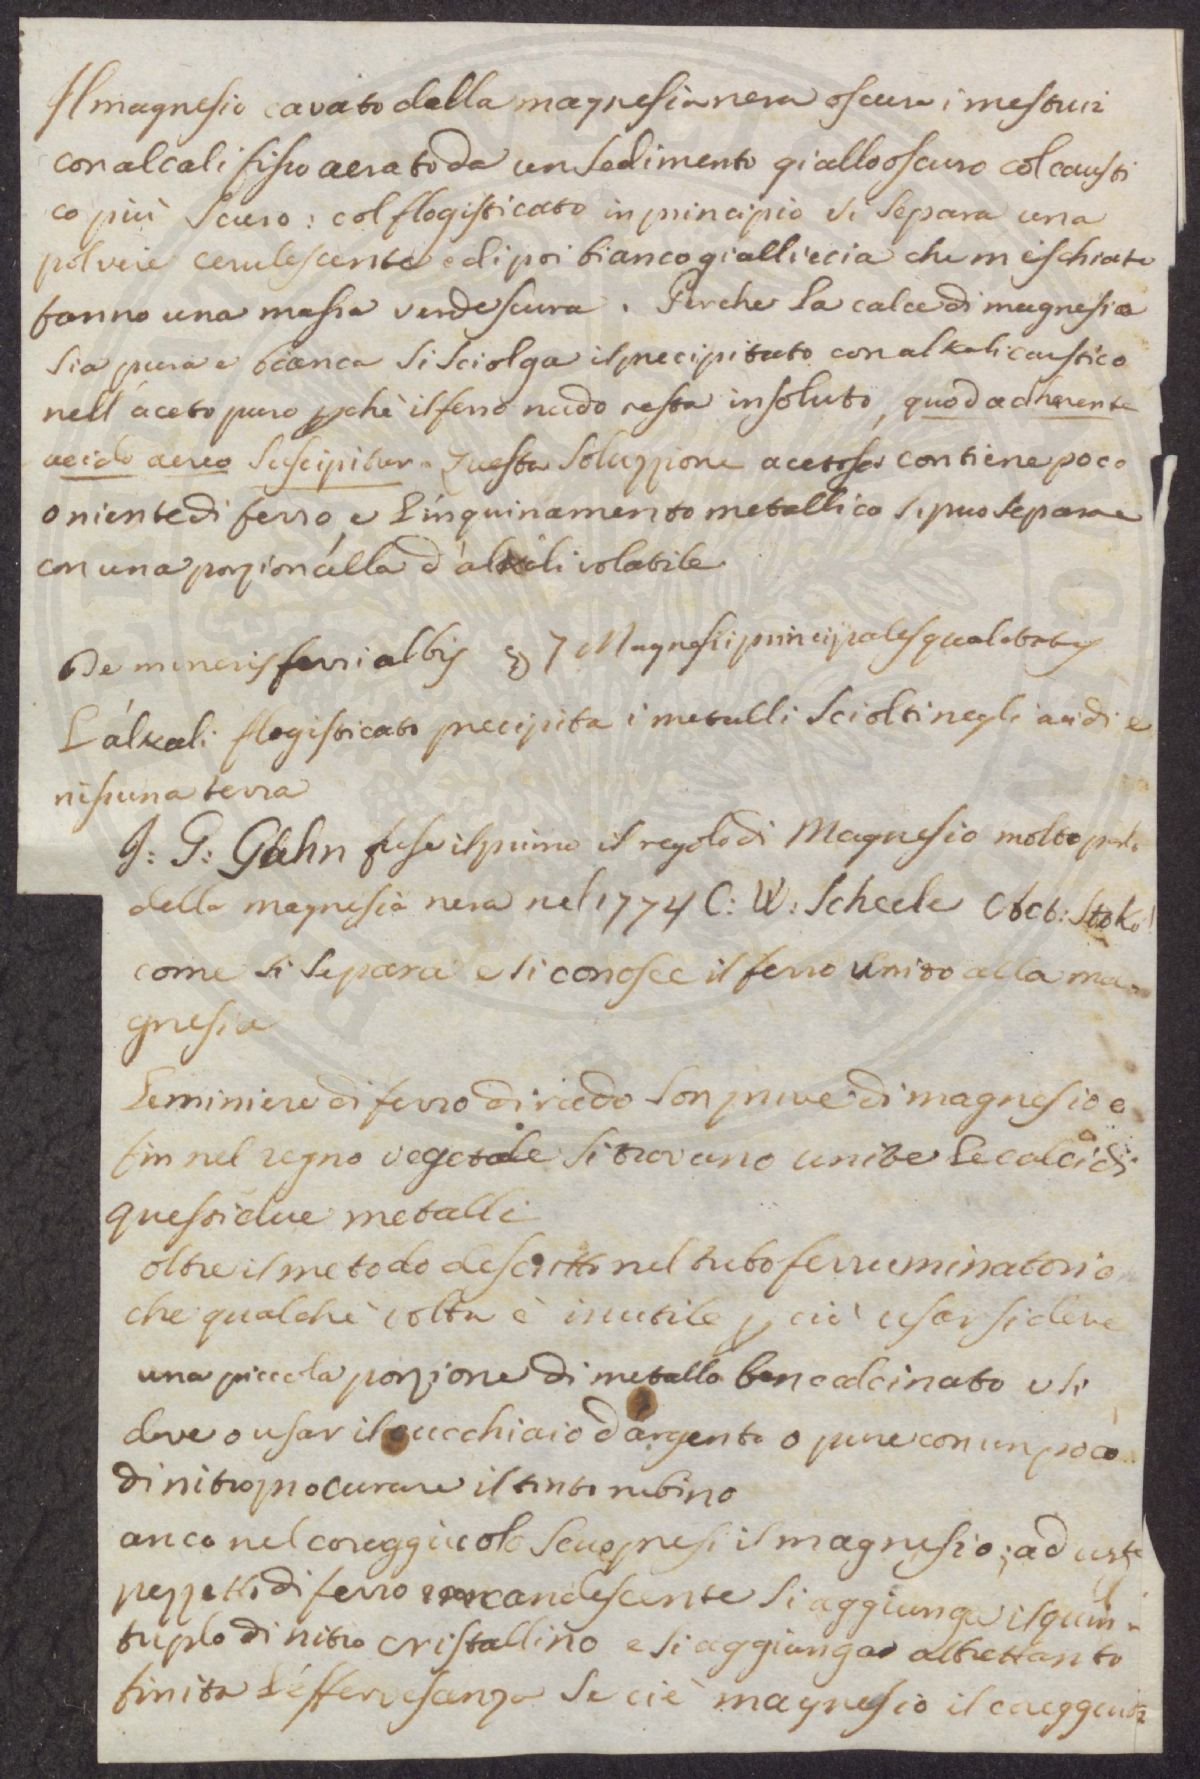 Il magnesio cavato dalla magnesia nera oscura i mestrui
con alcali fisso aerato da un sedimento giallo oscuro col causti
co più scuro: col flogisticato in principio si separa una
polvere cerulescente e di poi bianco gialliccia che mischiate
fanno una massa verde scura. Perche la calce di magnesia
sia pura e bianca si sciolga il precipitato con alkali caustico
nell'aceto puro pchè il ferro nudo resta insoluto, quod adherente
acido aereo suscipitur. Questa soluzzione acetosa contiene poco
o niente di ferro, e l'inquinamento metallico si puo separare
con una porzioncella d'alkali volatile
De mineris ferri albis § 7 Magnesii principales qualitates
L'alkali flogisticato precipita i metalli sciolti negli acidi e
nissuna terra
J: G: Gahn fuse il primo il regolo di Magnesio molto parlò
della magnesia nera nel 1774 C: W: Scheele Act: Stok
come si separa e si conosce il ferro unito alla ma-
gnesia
Le miniere di ferro di rado son prive di magnesio e
fin nel regno vegetale si trovano unite le calci di
questi due metalli
oltre il metodo descritto nel tubo ferruminatorio
che qualche volta è inutile p ciò usar si deve
una piccola porzione di metallo ben calcinato e si
deve o usar il cucchiaio d'argento o pure con un poco
di nitro procurare il tinto rubino
anco nel coreggiuolo scuopresi il magnesio; ad
pezzetti di ferro incandescente si aggiunga il quin-
tuplo di nitro cristallino e si aggiunga altrettanto
finita l'effervesanza se ciè magnesio il